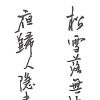 松雪落無
夜歸人隱